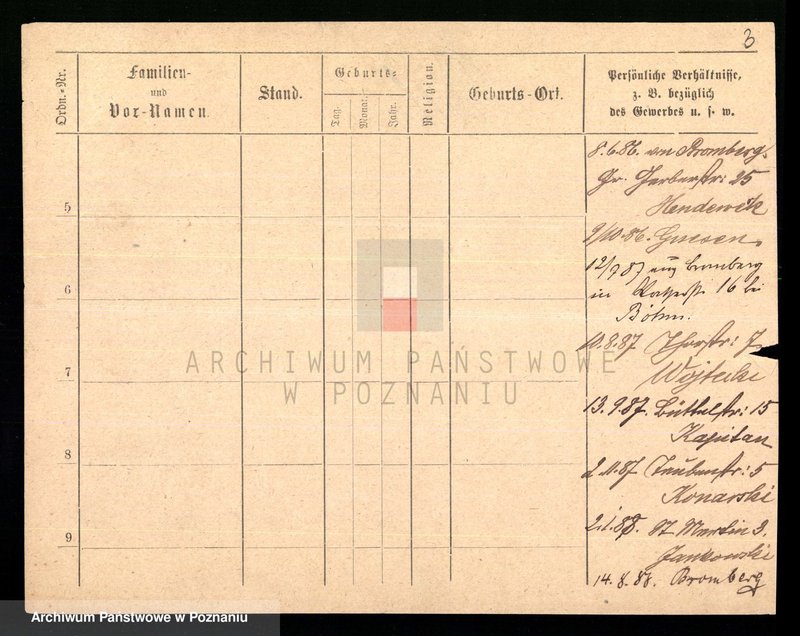 3
Ordn.-Nr.
Familien-
und
Vor-Namen.
Stand.
Geburts-
Tag.
Monat.
Jahr.
Religion.
Geburts-Ort.
Persönliche Verhältnisse,
z. B. bezüglich
des Gewerbes u. s. w.
8.6.86. von Bromberg.
Gr. Gerberstr: 25
5
Hendewerk
9/10.86. Gnesen.
12/7 87 aus Bromberg
6
in 16 bei
Böhm.
10.8.87
7
ARCHIWUM PAŃSTWOWE
W POZNANIU
13.9.87. Büttelstr: 15
Kapitan
8
2.11.87 Taubenstr: 5
Konarski
9
2.1.88. St. Martin 3.
Jankowski
14.8.88. Bromberg
Archiwum Państwowe w Poznaniu